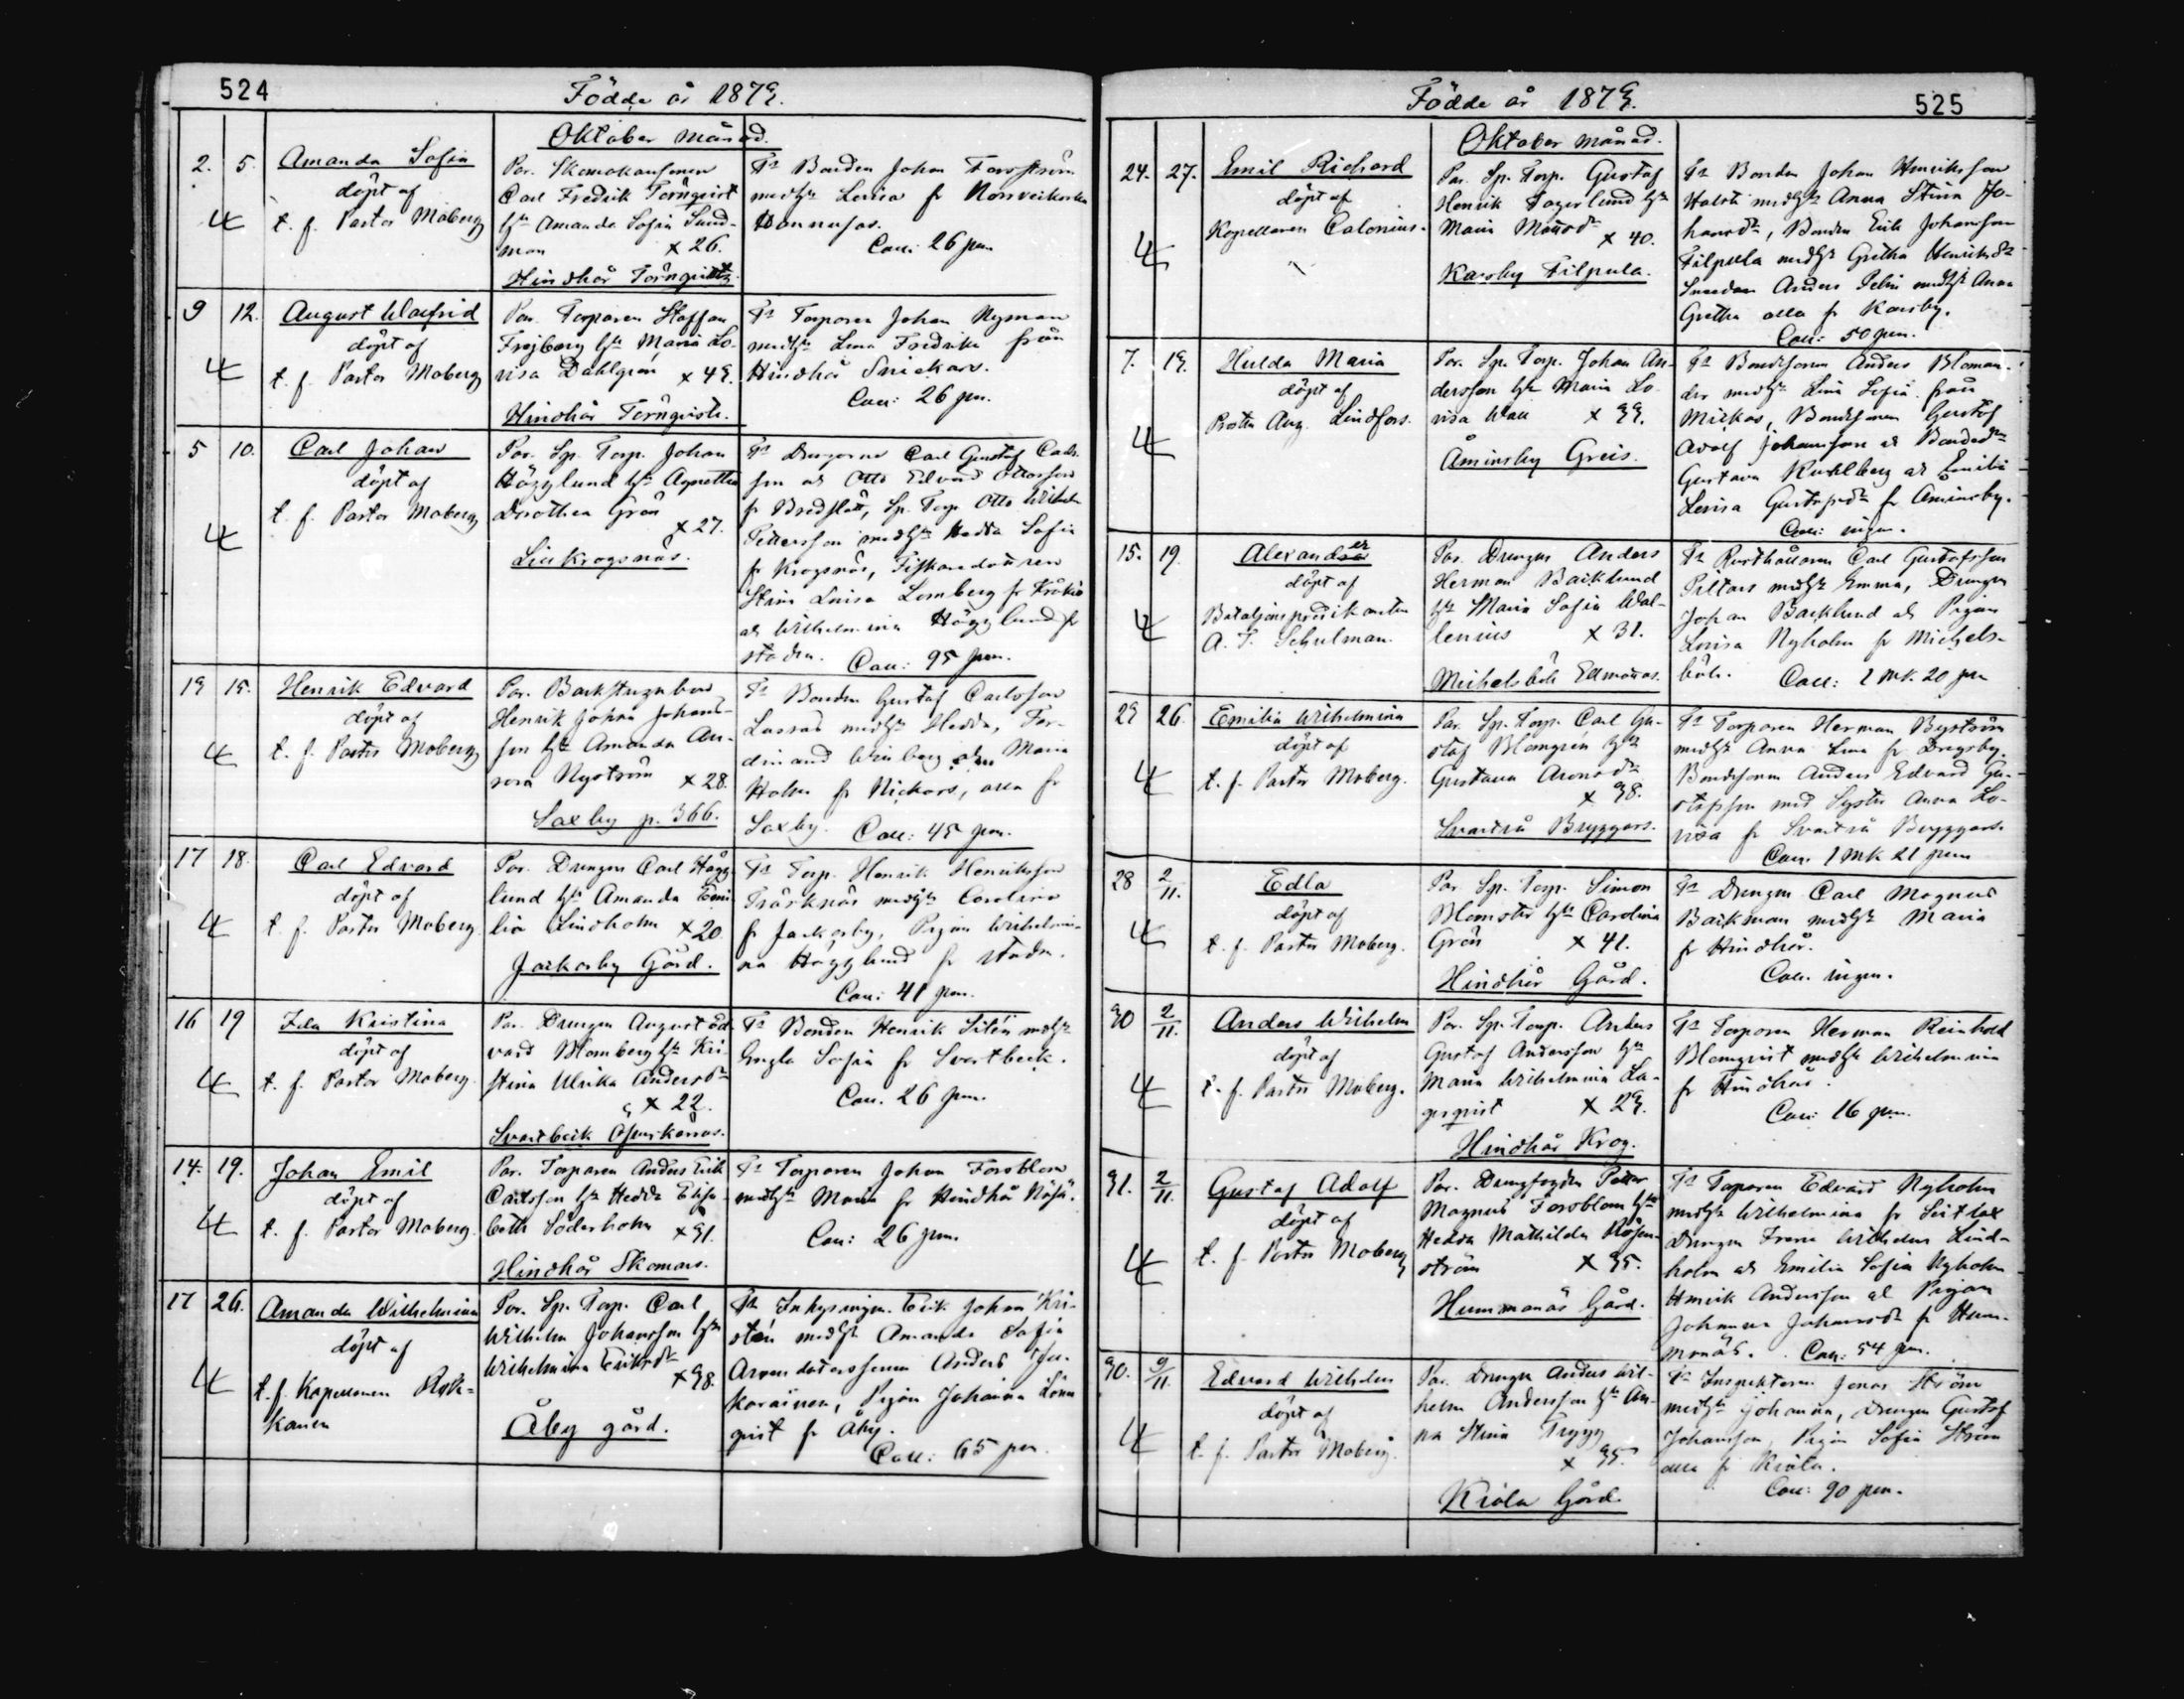 524
Födde år 1873.
Oktober månad.
2. 5. Amanda Sofia
döpt af
t. f. Pastor Moberg
Par. Skomakaremen
Carl Fredrik Törnqvist
hu Amanda Sofia Sund-
man × 26.
Hindhår Törnqvists
Fr Bonden Johan Forsström
medhu Lovisa fr
Hornnäs.
Coll: 26 pen.
9 12. August Walfrid
döpt af
t. f. Pastor Moberg
Par. Torparen Staffan
Frejborg hu Maria Lo-
visa Dahlgren × 43.
Hindhår Törnqvists.
Fr Torparen Johan Nyman
medhu Lena Fredrika från
Hindhår Snickars.
Coll: 26 pen.
5 10. Carl Johan
döpt af
t. f. Pastor Moberg
Par. Sp. Torp. Johan
Högglund hu Agnetha
Dorothea Grön
× 27.
Lill Krogsnäs.
Fr Drengarne Carl Gustaf Carls-
son och Otto Edvard Ottosson
fr Bredslätt, Sp. Torp Otto Wilhelm
Pettersson medhu Hedda Sofia
fr Krogsnäs, Fiskaredottren
Stina Luisa Lemberg fr Kråkö
och Wilhelmina Högglund fr
staden. Coll: 95 pen.
13 15. Henrik Edvard
döpt af
t. f. Pastor Moberg
Par. Backstugukarlen
Henrik Johan Johans-
son hu Amanda Au-
rora Nyström × 28.
Saxby p. 366.
Fr Bonden Gustaf Carlsson
Lassas medhu Hedda, Fer-
dinand Winberg och Maria
Holm fr Nickars, alla fr
Saxby. Coll: 45 pen.
17 18. Carl Edvard
döpt af
t. f. Pastor Moberg
Par. Drengen Carl Hägg-
lund hu Amanda Emi-
lia Lindholm × 20
Jackarby Gård.
Fr Torp. Henrik Henriksson
Träsknäs medhu Carolina
fr Jackarby, Pigan Wilhelmi-
na Högglund fr staden.
Coll: 41 pen.
16 19 Ida Kristina
döpt af
t. f. Pastor Moberg.
Par. Drengen August Ed-
vard Blomberg hu Kri-
stina Ulrika Andersdr
× 22.
Svartbeck Ofverkärras.
Fr Bonden Henrik Silén medhu
Engla Sofia fr Svartbeck.
Coll. 26 pen.
14. 19. Johan Emil
döpt af
t. f. Pastor Moberg.
Par. Torparen Anders Erik
Carlsson hu Hedda Elisa-
beth Söderholm × 31.
Hindhår Skomars.
Fr Torparen Johan Forsblom
medhu Maria fr Hindhår Näse.
Coll: 26 pen.
17 26. Amanda Wilhelmina
döpt af
t. f. Kapellanen
Par. Sp. Torp. Carl
Wilhelm Johansson hu
Wilhelmina Eriksdr
× 38.
Åby gård.
Fr Inhysingen Erik Johan Kri-
stén medhu Amanda Sofia
Arrendatorssonen Anders
Pigan Johanna Lönn-
qvist fr Åby.
Coll: 65 pen.
Födde år 1873.
525
Oktober månad.
24. 27. Emil Richard
döpt af
Kapellanen Calonius.
Par. Sp. Torp. Gustaf
Henrik Fagerlund hu
Maria Månsdr × 40.
Karsby Filpula.
Fr Bonden Johan Henriksson
Halsti medhu Anna Stina Jo-
hansdr, Bonden Erik Johansson
Filpula medhu Gretha Henriksdr
Anders Pelin medhu Anna
Gretha alla fr Karsby.
Coll: 50 pen.
7. 13. Hulda Maria
döpt af
Prosten Aug. Lindfors.
Par. Sp. Torp. Johan An-
dersson hu Maria Lo-
visa Wall × 33.
Åminsby Greis.
Fr Bondesonen Anders Bloman-
der medhu Lina Sofia från
Mickas, Bondesonen Gustaf
Adolf Johansson och Bondedr
Gustava Kullberg och Emilia
Lovisa Gustafsdr fr Åminsby.
Coll: ingen.
15. 19. Alexander
döpt af
Bataljonspredikanten
A. F. Schulman
Par. Drengen Anders
Herman Backlund
hu Maria Sofia Wal-
lenius × 31.
Michelsböle Edmossas.
Fr Rusthållaren Carl Gustafsson
Peltars medhu Emma, Drengen
Johan Backlund och Pigan
Lovisa Nyholm fr Michels-
böle. Coll: 1 mk. 20 pen
23 26. Emilia Wilhelmina
döpt af
t. f. Pastor Moberg.
Par. Sp. Torp. Carl Gu-
staf Blomgren hu
Gustava Aronsdr
× 38.
Svartså Bryggars.
Fr Torparen Herman Byström
medhu Anna Lena fr Drägsby,
Bondesonen Anders Edvard Gu-
stafsson med Syster Anna Lo-
visa fr Svartså Bryggars.
Coll. 1 mk 21 pen
28 2/11. Edla
döpt af
t. f. Pastor Moberg.
Par Sp. Torp. Simon
Blomster hu Carolina
Grön × 41.
Hindhår Gård.
Fr Drengen Carl Magnus
Backman medhu Maria
fr Hindhår.
Coll. ingen.
30 2/11. Anders Wilhelm
döpt af
t. f. Pastor Moberg.
Par. Sp. Torp. Anders
Gustaf Andersson hu
Maria Wilhelmina La-
gerqvist × 23.
Hindhår Krog.
Fr Torparen Herman Reinhold
Blomqvist medhu Wilhelmina
fr Hindhår.
Coll: 16 pen.
31. 2/11. Gustaf Adolf
döpt af
t. f. Pastor Moberg
Par. Drengfogden Petter
Magnus Forsblom hu
Hedda Mathilda Rosen-
ström × 35.
Hummanäs Gård.
Fr Torparen Edvard Nyholm
medhu Wilhelmina fr Seitlax
Drengen Frans Wilhelm Lind-
holm och Emilia Sofia Nyholm
Henrik Andersson och Pigan
Johanna Johansdr fr Hum-
manäs. Coll: 54 pen.
30. 9/11. Edvard Wilhelm
döpt af
t. f. Pastor Moberg.
Par. Drengen Anders Wil-
helm Andersson hu An-
na Stina Trygg
× 35.
Kiala Gård.
Fr Inspektoren Jonas Ström
medhu Johanna, Drengen Gustaf
Johansson, Pigan Sofia Ström
alla fr Kiala.
Coll: 90 pen.